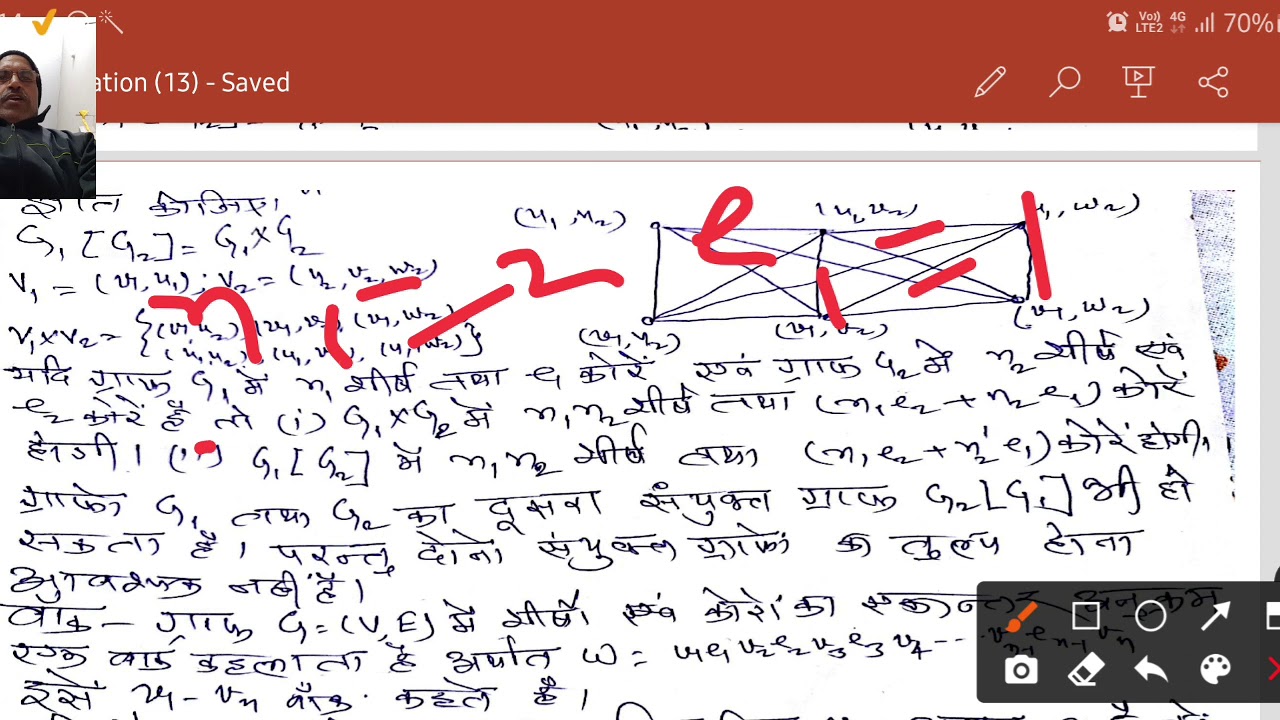 Vo)) 4G
LTE2 70%
ation (13) - Saved
ज्ञात कीजिए।
G₁ [G₂] = G₁ × G₂
V₁ = (v₁, u₁) ; V₂ = (u₂, v₂, w₂)
(u₁, u₂) (u₁, v₂) u₁, w₂)
V₁×V₂ = {(v₁, u₂) (v₁, v₂) (v₁, w₂)
(u₁, u₂), (u₁, v₂), (u₁, w₂)}
(v₁, u₂) (v₁, v₂) (v₁, w₂)
यदि ग्राफ G₁ में n₁ शीर्ष तथा e₁ कोरें एवं ग्राफ G₂ में n₂ शीर्ष एवं
e₂ कोरें हैं तो (i) G₁×G₂ में n₁n₂ शीर्ष तथा (n₁e₂ + n₂e₁) कोरें
होगी। G₁ [G₂] में n₁n₂ शीर्ष तथा (n₁e₂ + n₂²e₁) कोरें होगी।
ग्राफो G₁ तथा G₂ का दूसरा संयुक्त ग्राफ G₂ [G₁] भी हो
सकता है। परन्तु दोनो संयुक्त ग्राफो का तुल्य होना
आवश्यक नहीं है।
वाक - ग्राफ G = (V, E) में शीर्षो एवं कोरों का एकान्तर अनुक्रम
एक वाक कहलाता है अर्थात w = v₁e₁v₂e₂v₃e₃v₄ --- vₙ₋₁eₙ₋₁vₙ
इसे v₁ - vₙ वॉक कहते हैं।
n₁ e₂